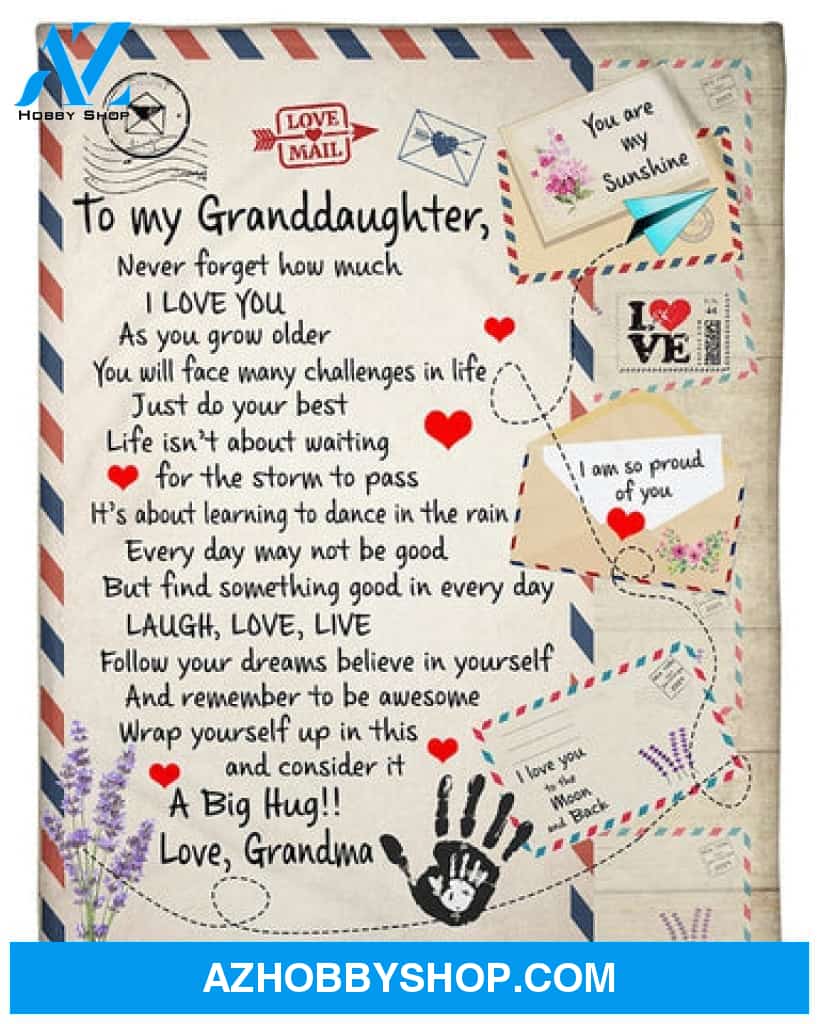 AZ
HOBBY SHOP
LOVE
MAIL
You are
my
Sunshine
To my Granddaughter,
Never forget how much
I LOVE YOU
As you grow older
You will face many challenges in life
Just do your best
Life isn't about waiting
for the storm to pass
It's about learning to dance in the rain
Every day may not be good
But find something good in every day
LAUGH, LOVE, LIVE
Follow your dreams believe in yourself
And remember to be awesome
Wrap yourself up in this
and consider it
A Big Hug!!
Love, Grandma
LOVE
44
I am so proud
of you
I love you
to the
Moon
and Back
AZHOBBYSHOP.COM